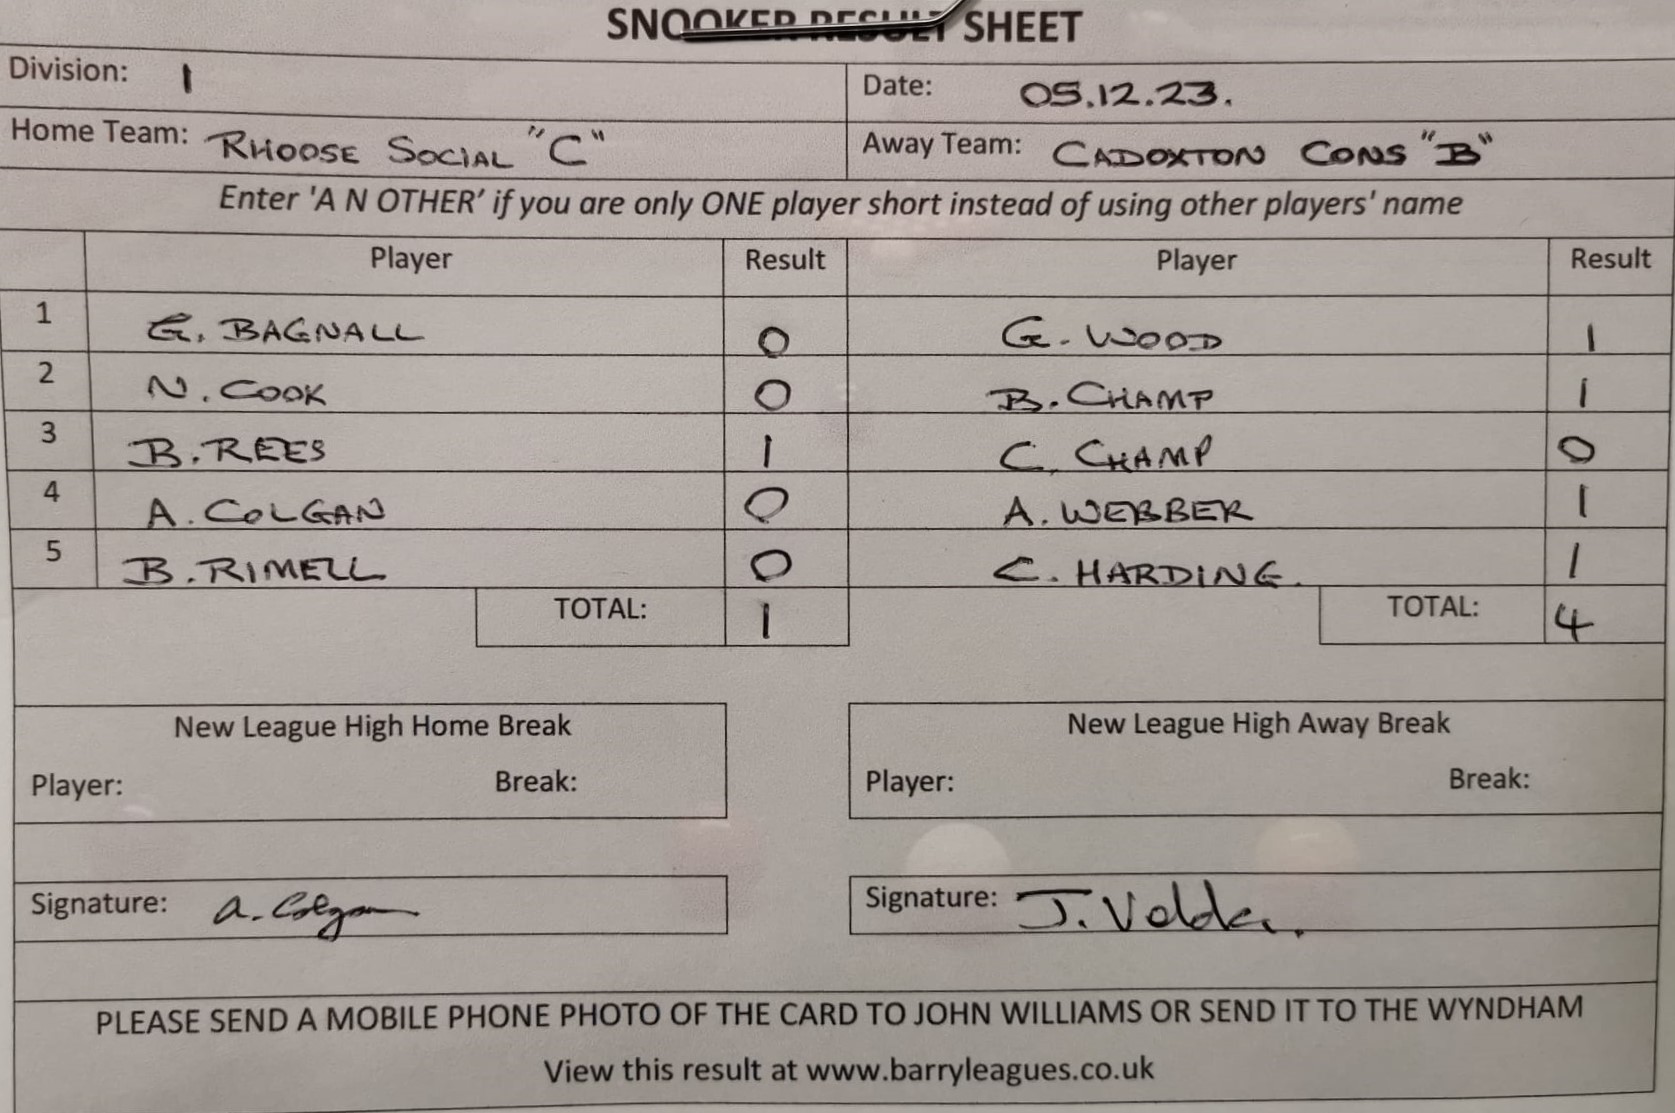 SNOOKER RESULT SHEET
Division: 1 Date: 05.12.23.
Home Team: RHOOSE SOCIAL "C" Away Team: CADOXTON CONS "B"
Enter 'A N OTHER' if you are only ONE player short instead of using other players' name
Player Result Player Result
1 G. BAGNALL 0 G. WOOD 1
2 N. COOK 0 B. CHAMP 1
3 B. REES 1 C. CHAMP 0
4 A. COLGAN 0 A. WEBBER 1
5 B. RIMELL 0 C. HARDING. 1
TOTAL: 1 TOTAL: 4
New League High Home Break New League High Away Break
Player: Break: Player: Break:
Signature: A. Colgan Signature: J.
PLEASE SEND A MOBILE PHONE PHOTO OF THE CARD TO JOHN WILLIAMS OR SEND IT TO THE WYNDHAM
View this result at www.barryleagues.co.uk